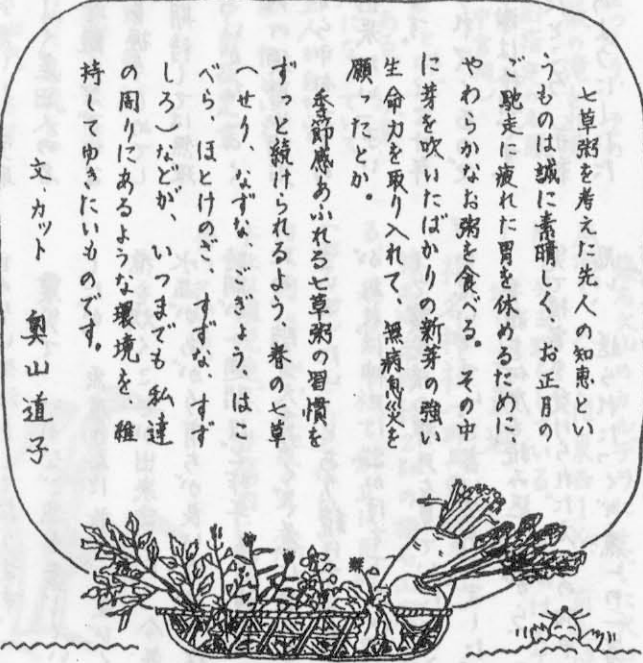 七草粥を考えた先人の知恵とい
うものは誠に素晴しい。お正月の
ご馳走に疲れた胃を休めるために、
やわらかなお粥を食べる。その中
に芽を吹いたばかりの新芽の強い
生命力を取り入れて、無病息災を
願ったとか。
季節感あふれる七草粥の習慣を
ずっと続けられるよう、春の七草
(せり、なずな、ごぎょう、はこ
べら、ほとけのざ、すずな、すず
しろ)などが、いつまでも私達
の周りにあるような環境を維
持してゆきたいものです。
文カット 奥山道子